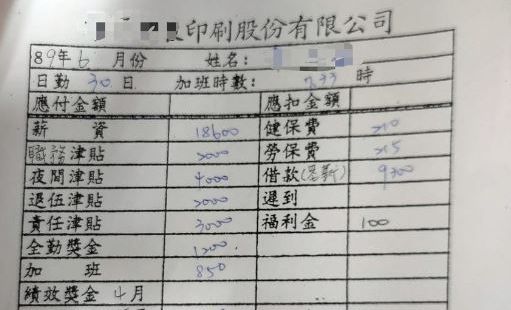 印刷股份有限公司
89年6月份 姓名:
日勤30日 加班時數: 233時
應付金額 應扣金額
薪資 18600 健保費 210
職務津貼 2000 勞保費 215
夜間津貼 4000 借款 9300
退伍津貼 2000 遲到
責任津貼 3000 福利金 100
全勤獎金 1200
加班 850
績效獎金 4月